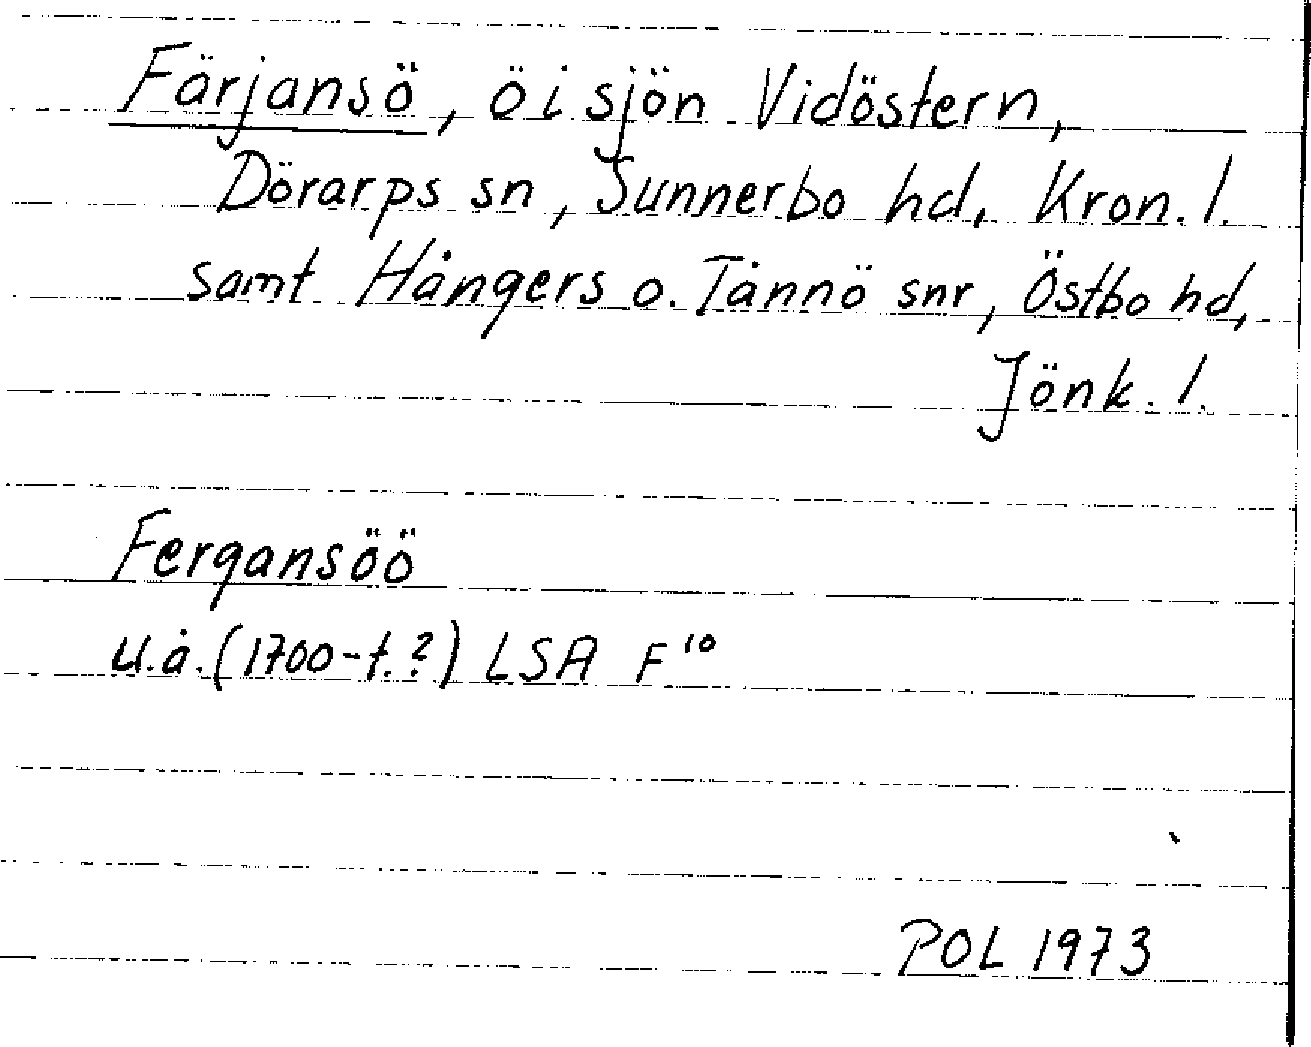 Färjansö, ö i sjön Vidöstern,
Dörarps sn, Sunnerbo hd, Kron. l.
samt Hångers o. Tånnö snr, Östbo hd,
Jönk. l.
Fergansöö
u.å. (1700-t.?) LSA F¹⁰
POL 1973